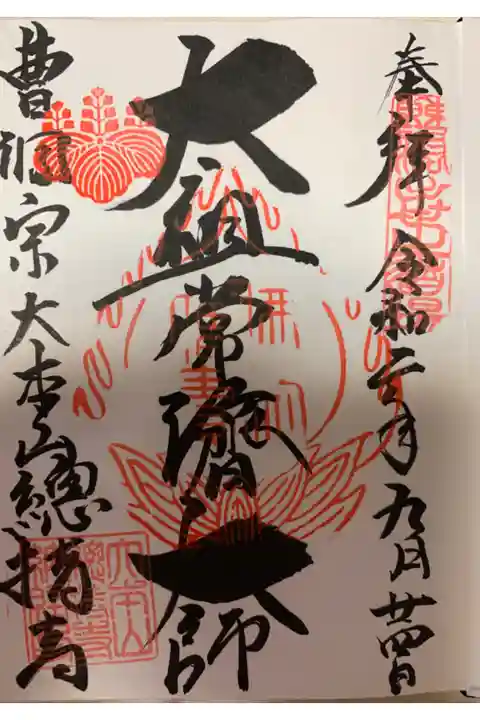 奉拝 令和二年九月廿四日
太祖常濟大師
曹洞宗大本山總持寺